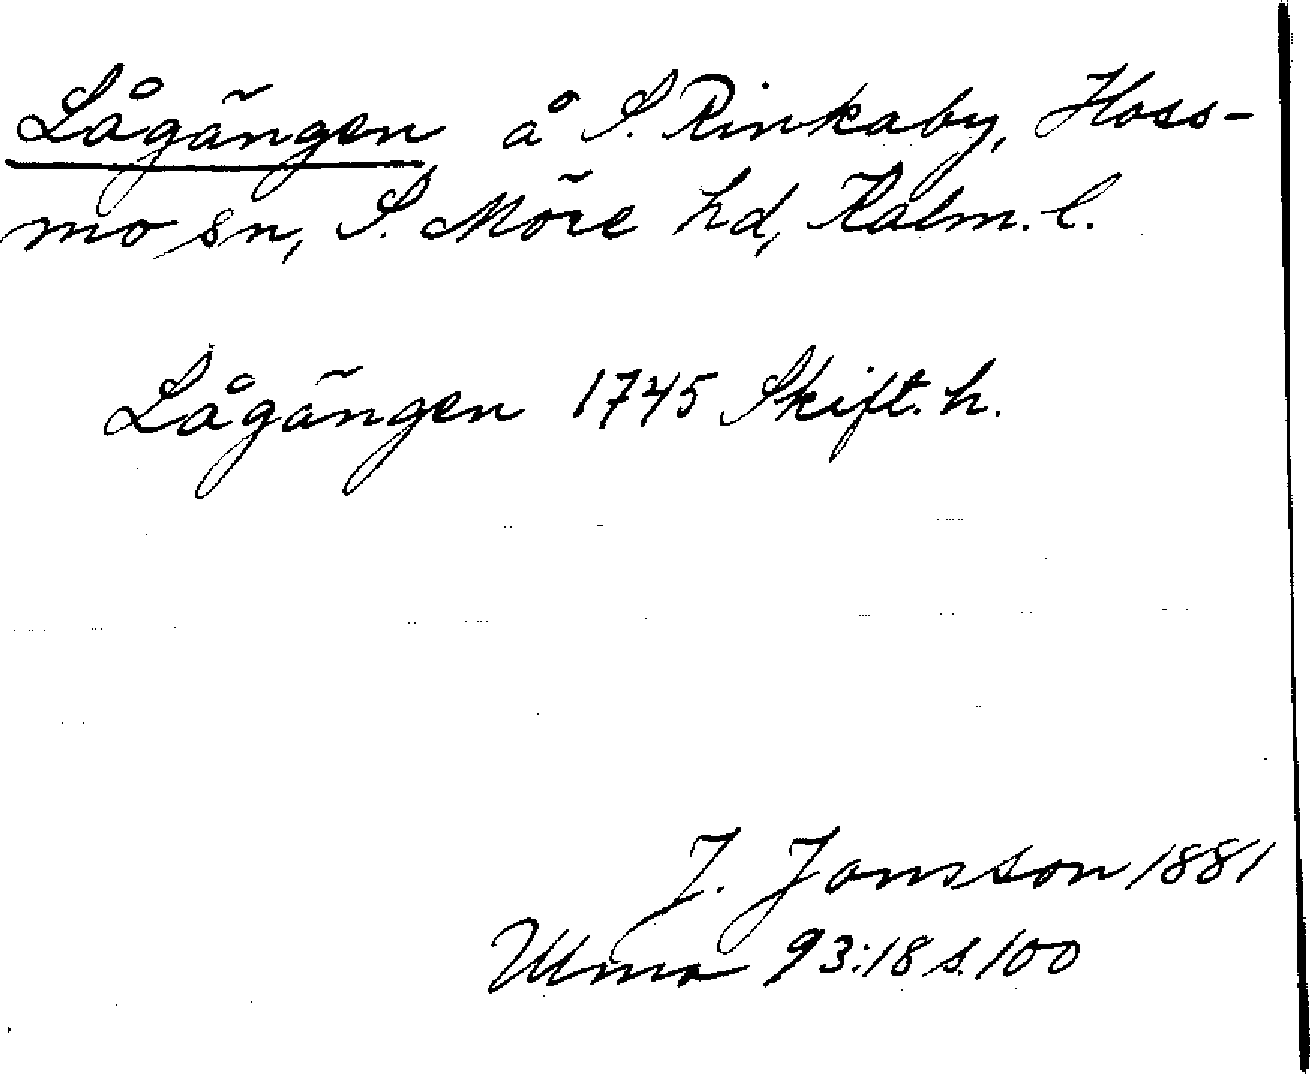 Lågängen å S. Rinkaby, Hoss-
mo sn, S. Möre hd, Kalm. l.
Lågängen 1745 Skift. h.
J. Jonsson 1881
Ulma 93:18 s. 100